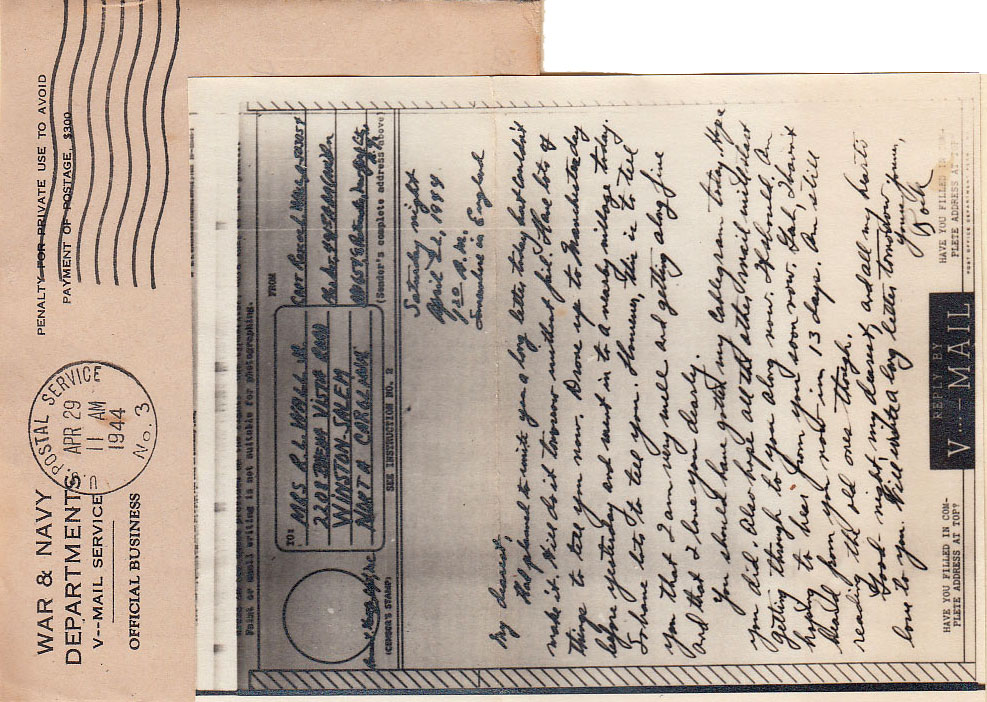 WAR & NAVY
DEPARTMENTS
V--MAIL SERVICE
OFFICIAL BUSINESS
U.S. POSTAL SERVICE
APR 29
11 AM
1944
No. 3
PENALTY FOR PRIVATE USE TO AVOID
PAYMENT OF POSTAGE, $300
Faint or small writing is not suitable for photographing.
TO:
MRS R.L. WALL JR.
2208 BUENA VISTA ROAD
WINSTON-SALEM
NORTH CAROLINA
FROM
(CENSOR'S STAMP)
SEE INSTRUCTION NO. 2
(Sender's complete address above)
Saturday night
April 22, 1944
Somewhere in England
My dearest,
Had planned to write you a long letter today but couldn't
make it. Will do it tomorrow without fail. Have lots of
things to tell you now. Drove up to Manchester day
before yesterday and went in to a nearby village today.
So have lots to tell you. However, this is to tell
you that I am very well and getting along fine
and that I love you dearly.
You should have gotten my Cablegram today. Hope
you did. Also hope all the other mail without
getting through to you along now. I should
be hearing from you soon now. Gosh, I haven't
heard from you now in 13 days. Am still
reading the old ones though.
Good night, my dearest, and all my heart's
love to you. Will write a long letter tomorrow
Yours,
Bob
HAVE YOU FILLED IN COM-
PLETE ADDRESS AT TOP?
REPLY BY
V···-MAIL
HAVE YOU FILLED IN
PLETE ADDRESS AT TOP?
POST OFFICE DEPARTMENT